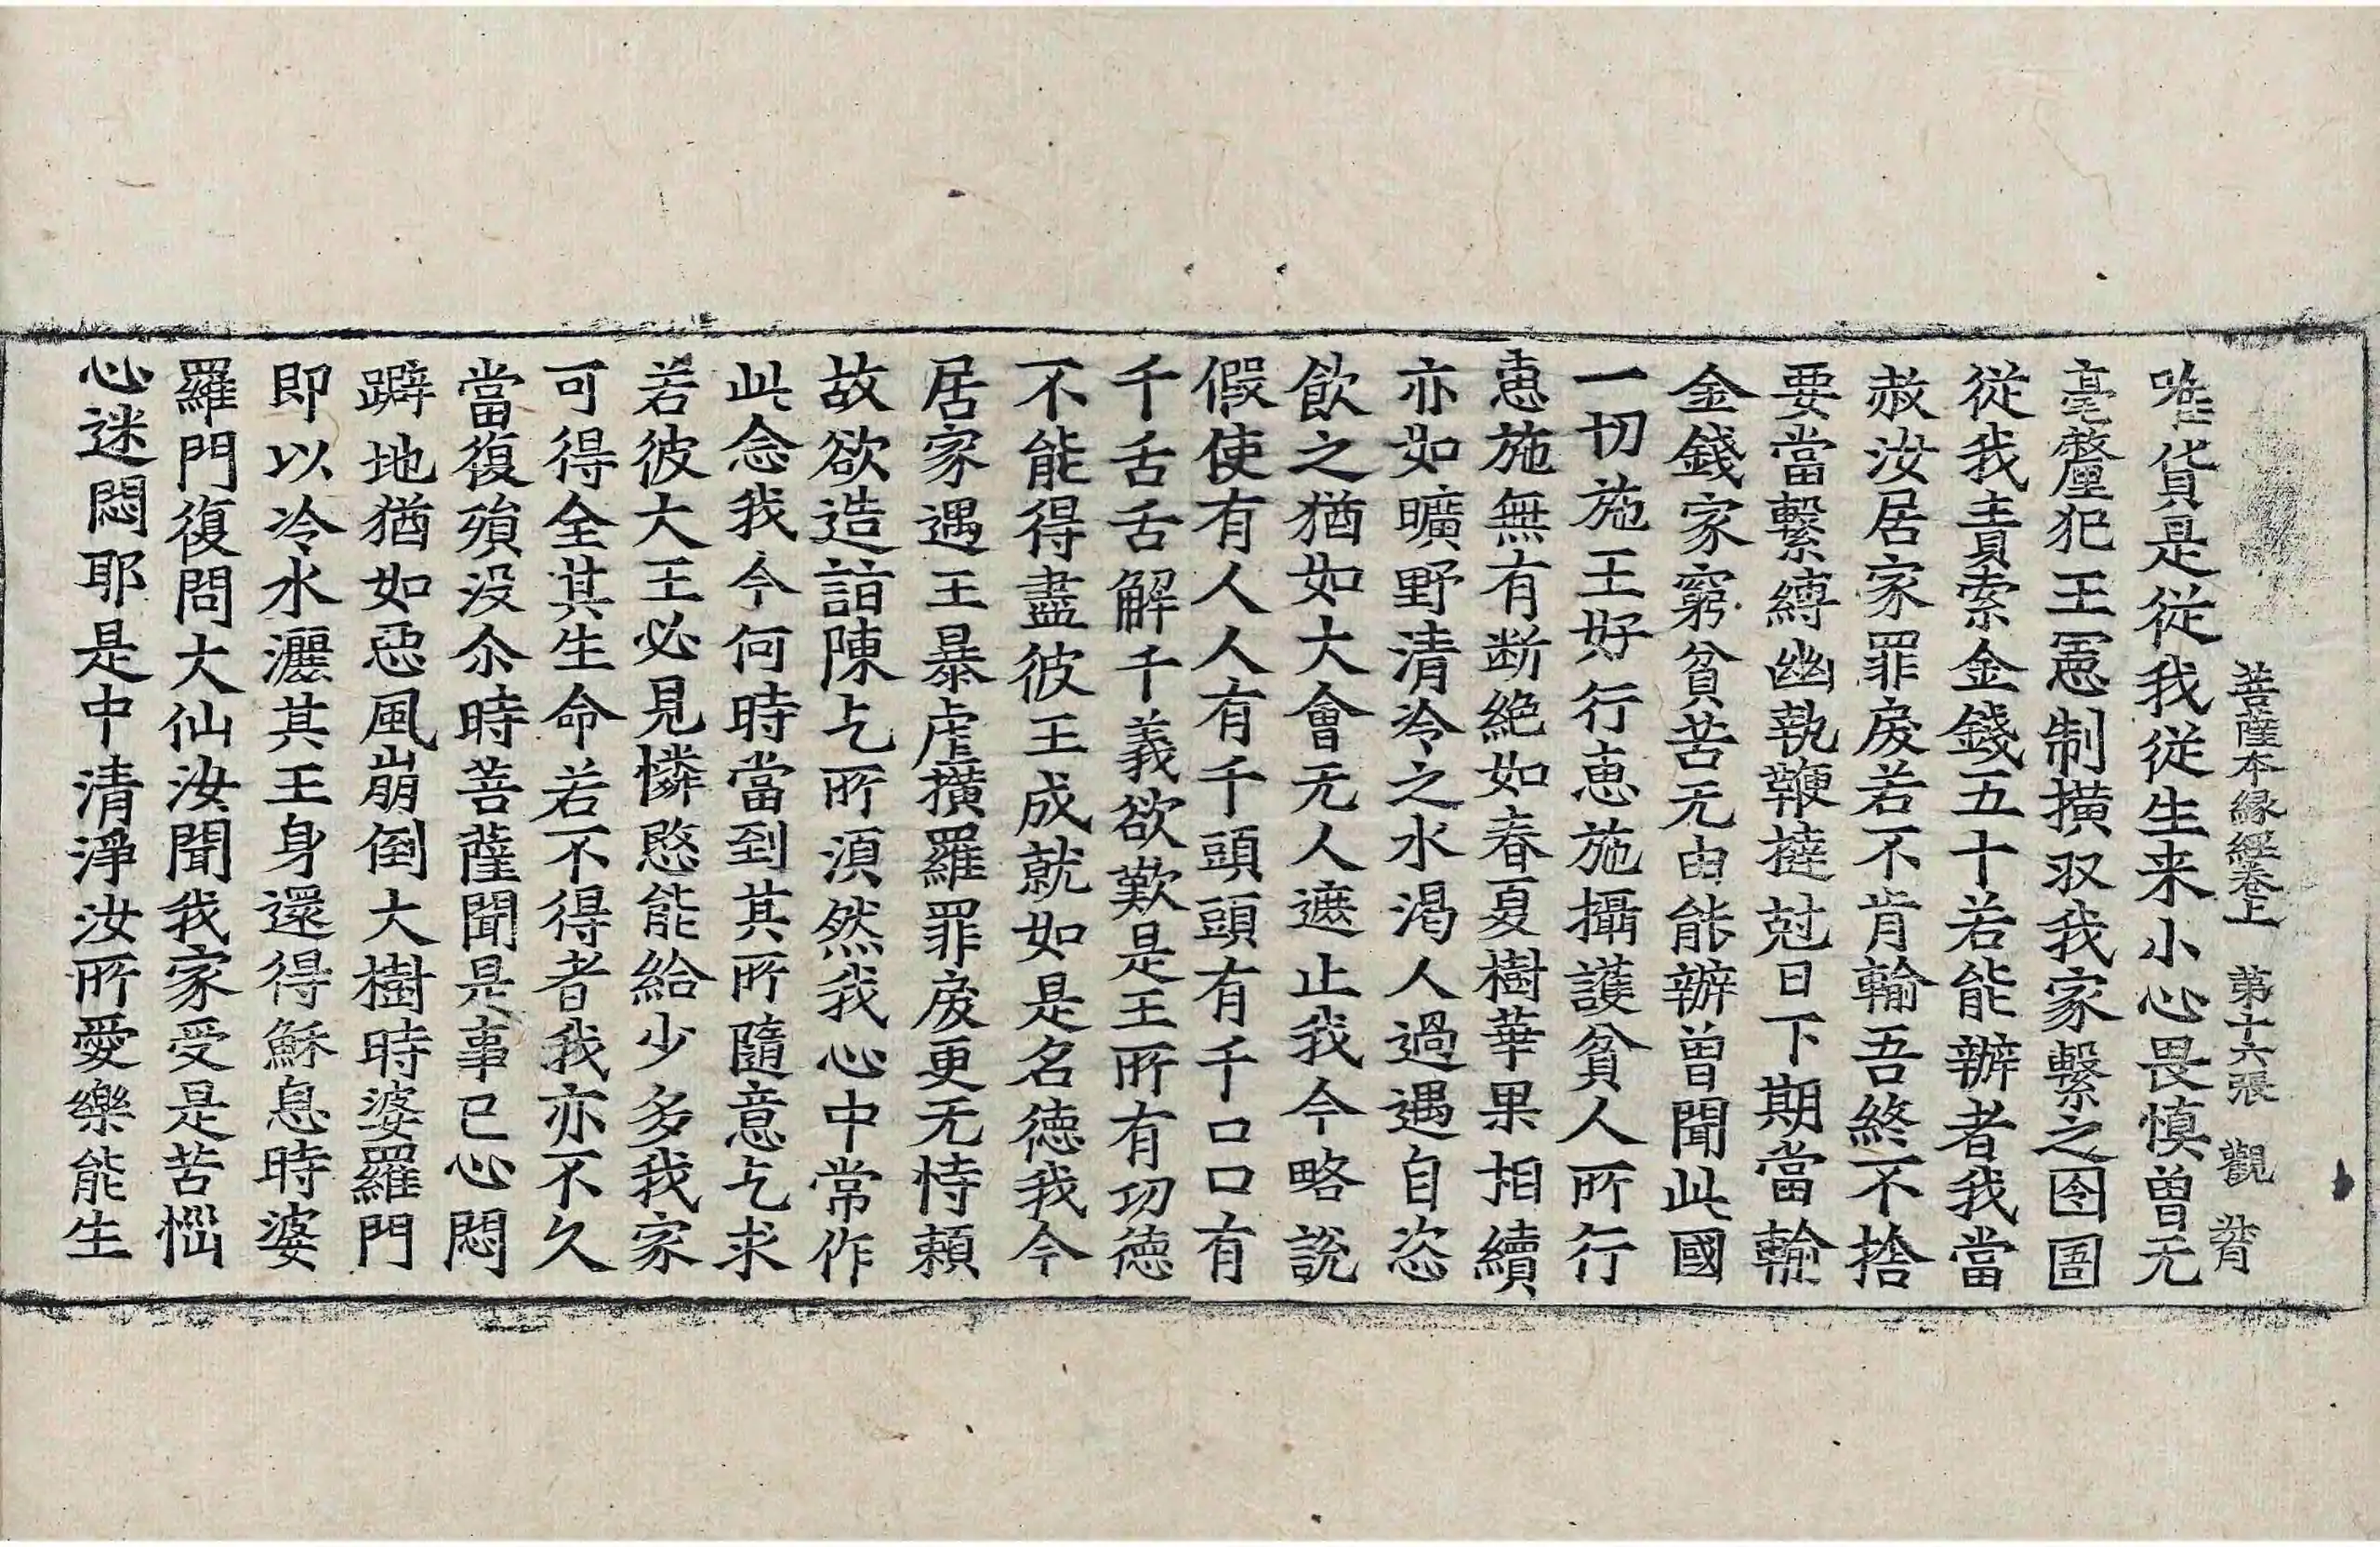 菩薩本縁經卷上 第十六張 觀 
唯貨是從我從生来小心畏慎曽无
毫釐犯王憲制撗収我家繫之囹圄
從我責索金錢五十若能辦者我當
赦汝居家罪戾若不肯輸吾終不捨
要當繫縛幽執鞭撻尅日下期當輸
金錢家窮貧苦无由能辦曽聞此國
一切施王好行恵施攝護貧人所行
恵施無有断絶如春夏樹華果相續
亦如曠野清冷之水渇人過遇自恣
飲之猶如大會无人遮止我今略說
假使有人人有千頭頭有千口口有
千舌舌解千義欲歎是王所有功徳
不能得盡彼王成就如是名徳我今
居家遇王暴虐撗羅罪戾更无恃頼
故欲造詣陳乞所湏然我心中常作
此念我今何時當到其所隨意乞求
若彼大王必見憐愍能給少多我家
可得全其生命若不得者我亦不久
當復殞没尒時菩薩聞是事已心悶
躃地猶如惡風崩倒大樹時婆羅門
即以冷水灑其王身還得穌息時婆
羅門復問大仙汝聞我家受是苦惱
心迷悶耶是中清淨汝所愛樂能生